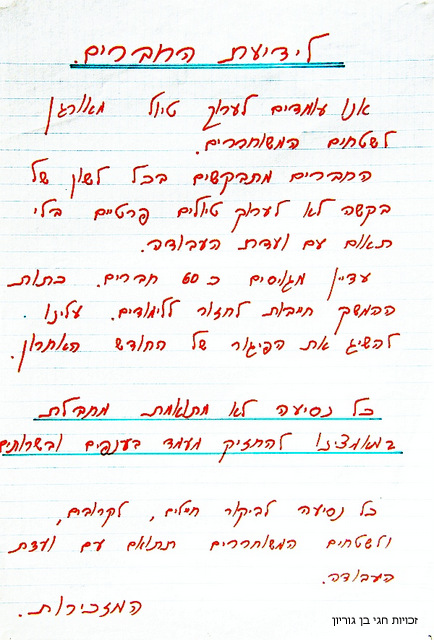 לידיעת החברים.
אנו עומדים לערוך טיול מאורגן
לשטחים המשוחררים.
החברים מתבקשים בכל לשון של
בקשה לא לערוך טיולים פרטיים בלי
תאום עם ועדת העבודה.
עדיין מגויסים כ 60 חברים. כתות
ההמשך חייבות לחזור ללימודים. עלינו
להשיג את הפיגור של החודש האחרון.
כל נסיעה לא מתואמת מחבלת
במאמצינו להחזיק מעמד בענפים ובשרותים
כל נסיעה לביקור חיילים, לקרובים,
ולשטחים המשוחררים תתואם עם ועדת
העבודה.
המזכירות.
זכויות חגי בן גוריון